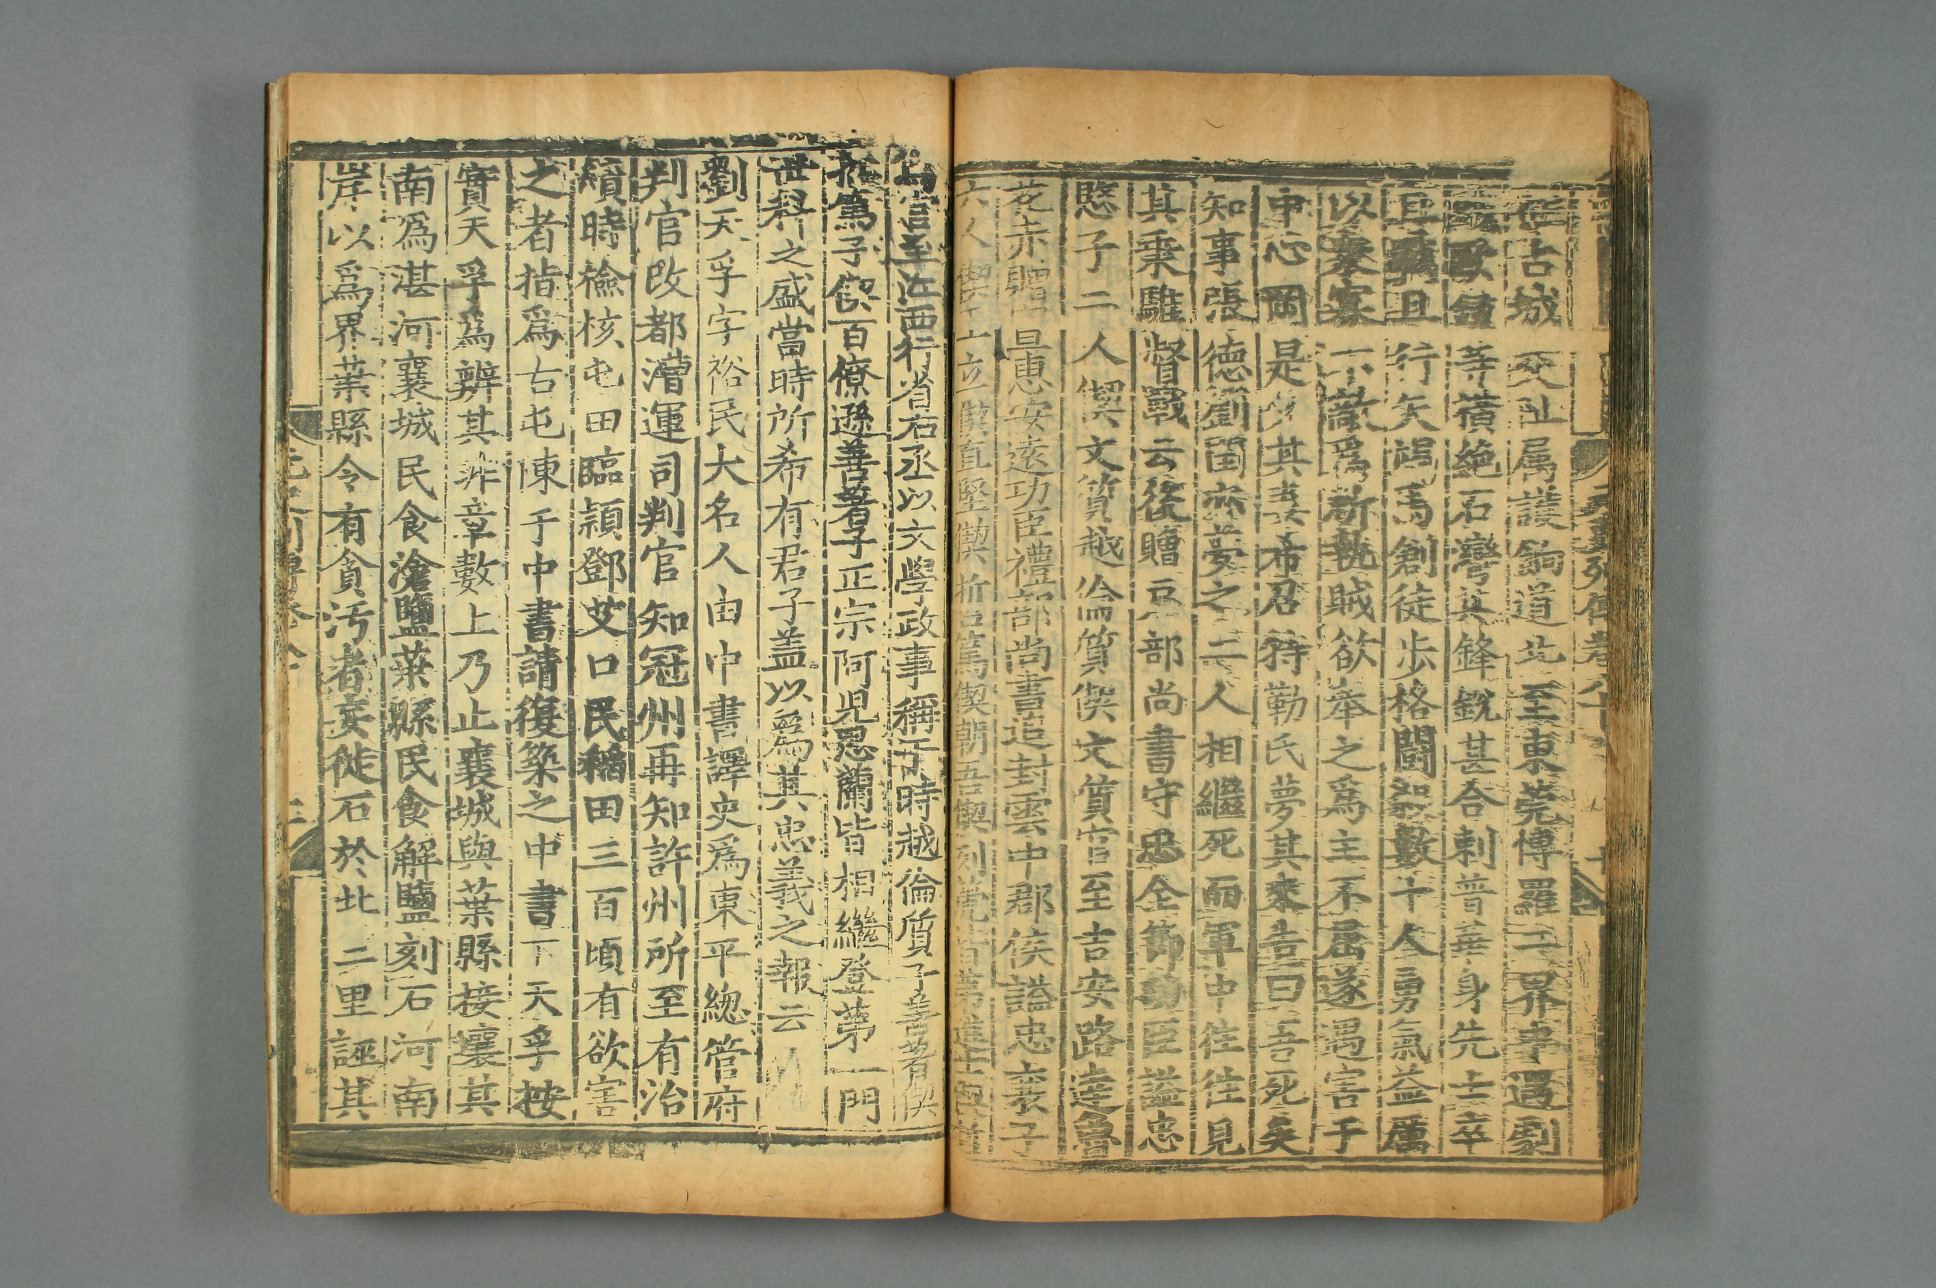 至古城 交趾属護餉道北至東莞博羅二界事遇劇
歐鍾等橫絶石灣其鋒銳甚合剌普華身先士卒
且戰且行矢竭馬創徒步格鬬殺數十人勇氣益厲
以衆寡不敵爲所執賊欲奉之爲主不屈遂遇害于
中心岡是夕其妻希召特勒氏夢其來告曰吾死矣
知事張德劉閏亦夢之二人相繼死而軍中往往見
其乗騅督戰云後贈戸部尚書守忠全節功臣謚忠
愍子二人偰文質越倫質偰文質官至吉安路達魯
花赤贈宣惠安遠功臣禮部尚書追封雲中郡侯謚忠襄子
六人偰玉立偰直堅偰哲篤偰朝吾偰列箎皆第進士偰哲
篤官至江西行省右丞以文學政事稱于時越倫質子善著偰
哲篤子偰百僚遜善著子正宗阿児思蘭皆相繼登第一門
世科之盛當時所希有君子盖以爲其忠義之報云
劉天孚字裕民大名人由中書譯史爲東平總管府
判官改都漕運司判官知冠州再知許州所至有治
績時檢核屯田臨潁鄧艾口民稲田三百頃有欲害
之者指爲古屯陳于中書請復築之中書下天孚按
實天孚爲辨其非章數上乃止襄城與葉縣接壤其
南爲湛河襄城民食滄鹽葉縣民食解鹽刻石河南
岸以爲界葉縣令有貪汚者妄徙石於北二里誣其